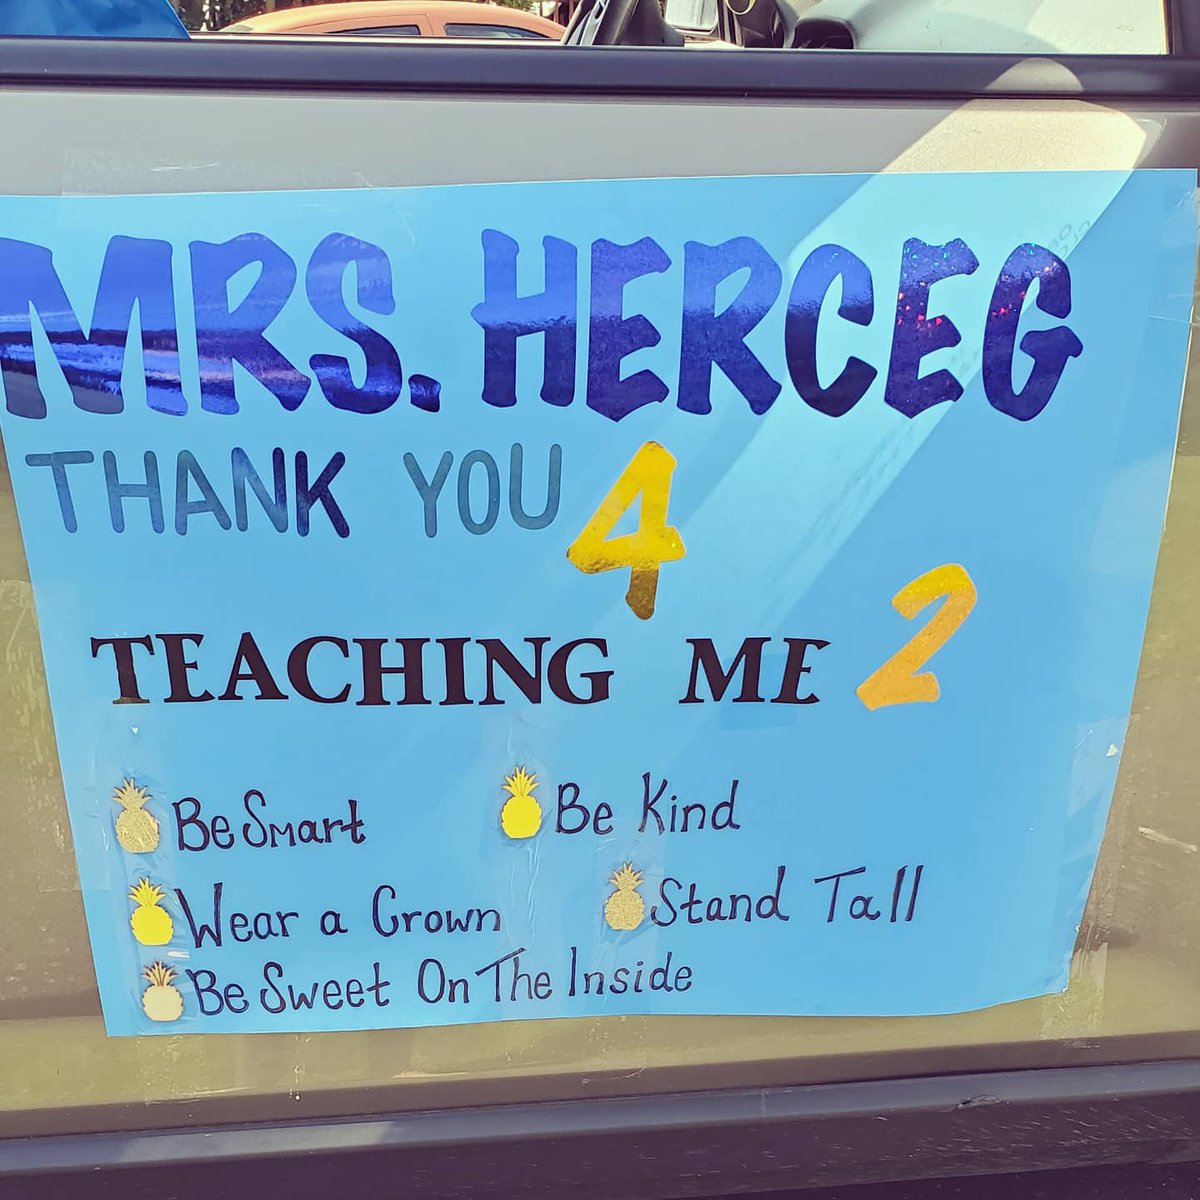 MRS. HERCEG
THANK YOU 4
TEACHING ME 2
Be Smart
Be Kind
Wear a Crown
Stand Tall
Be Sweet On The Inside